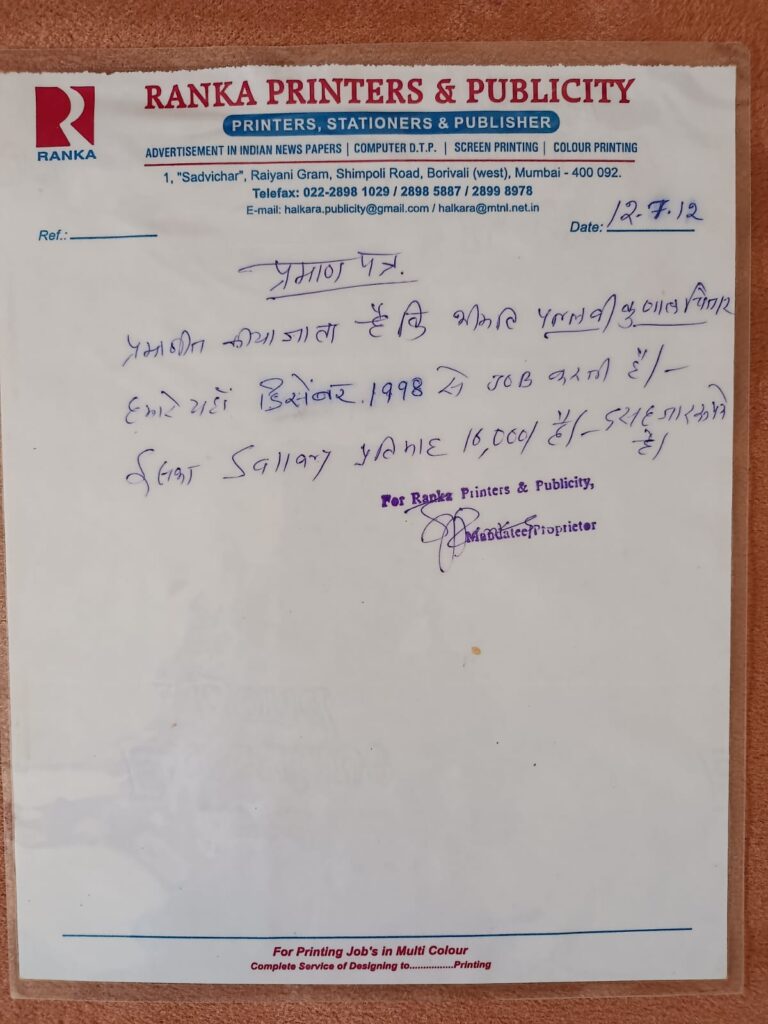 RANKA
RANKA PRINTERS & PUBLICITY
PRINTERS, STATIONERS & PUBLISHER
ADVERTISEMENT IN INDIAN NEWS PAPERS | COMPUTER D.T.P. | SCREEN PRINTING | COLOUR PRINTING
1, "Sadvichar", Raiyani Gram, Shimpoli Road, Borivali (west), Mumbai - 400 092.
Telefax: 022-2898 1029 / 2898 5887 / 2899 8978
E-mail: halkara.publicity@gmail.com / halkara@mtnl.net.in
Ref.:
Date: 12.7.12
प्रमाण पत्र.
प्रमाणीत कीया जाता है कि श्रीमति पल्लवी कुणाल
हमारे यहाँ डिसेंबर, 1998 से JOB करती है/-
ईसका Sallary प्रतिमाह 10,000/ है/-
है/
For Ranka Printers & Publicity,
Mandatee/Proprietor
For Printing Job's in Multi Colour
Complete Service of Designing to................Printing